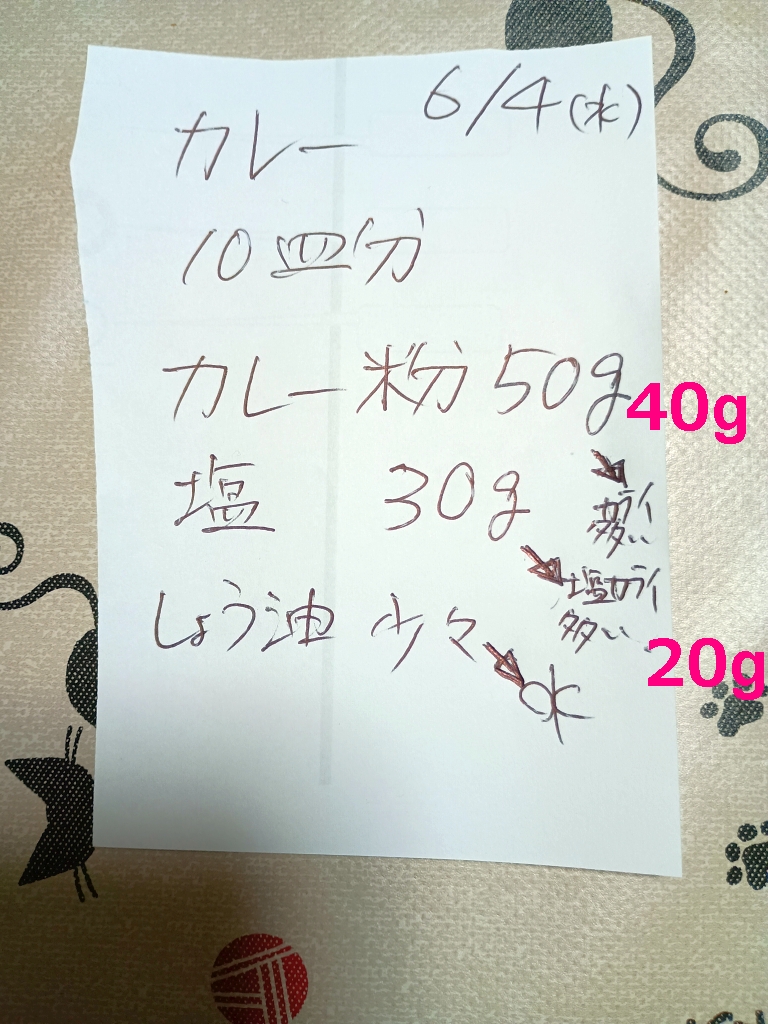 6/4(水)
カレー
10皿分
カレー粉 50g
40g
カライ
多い
塩 30g
塩カライ
多い
20g
しょう油 少々
OK